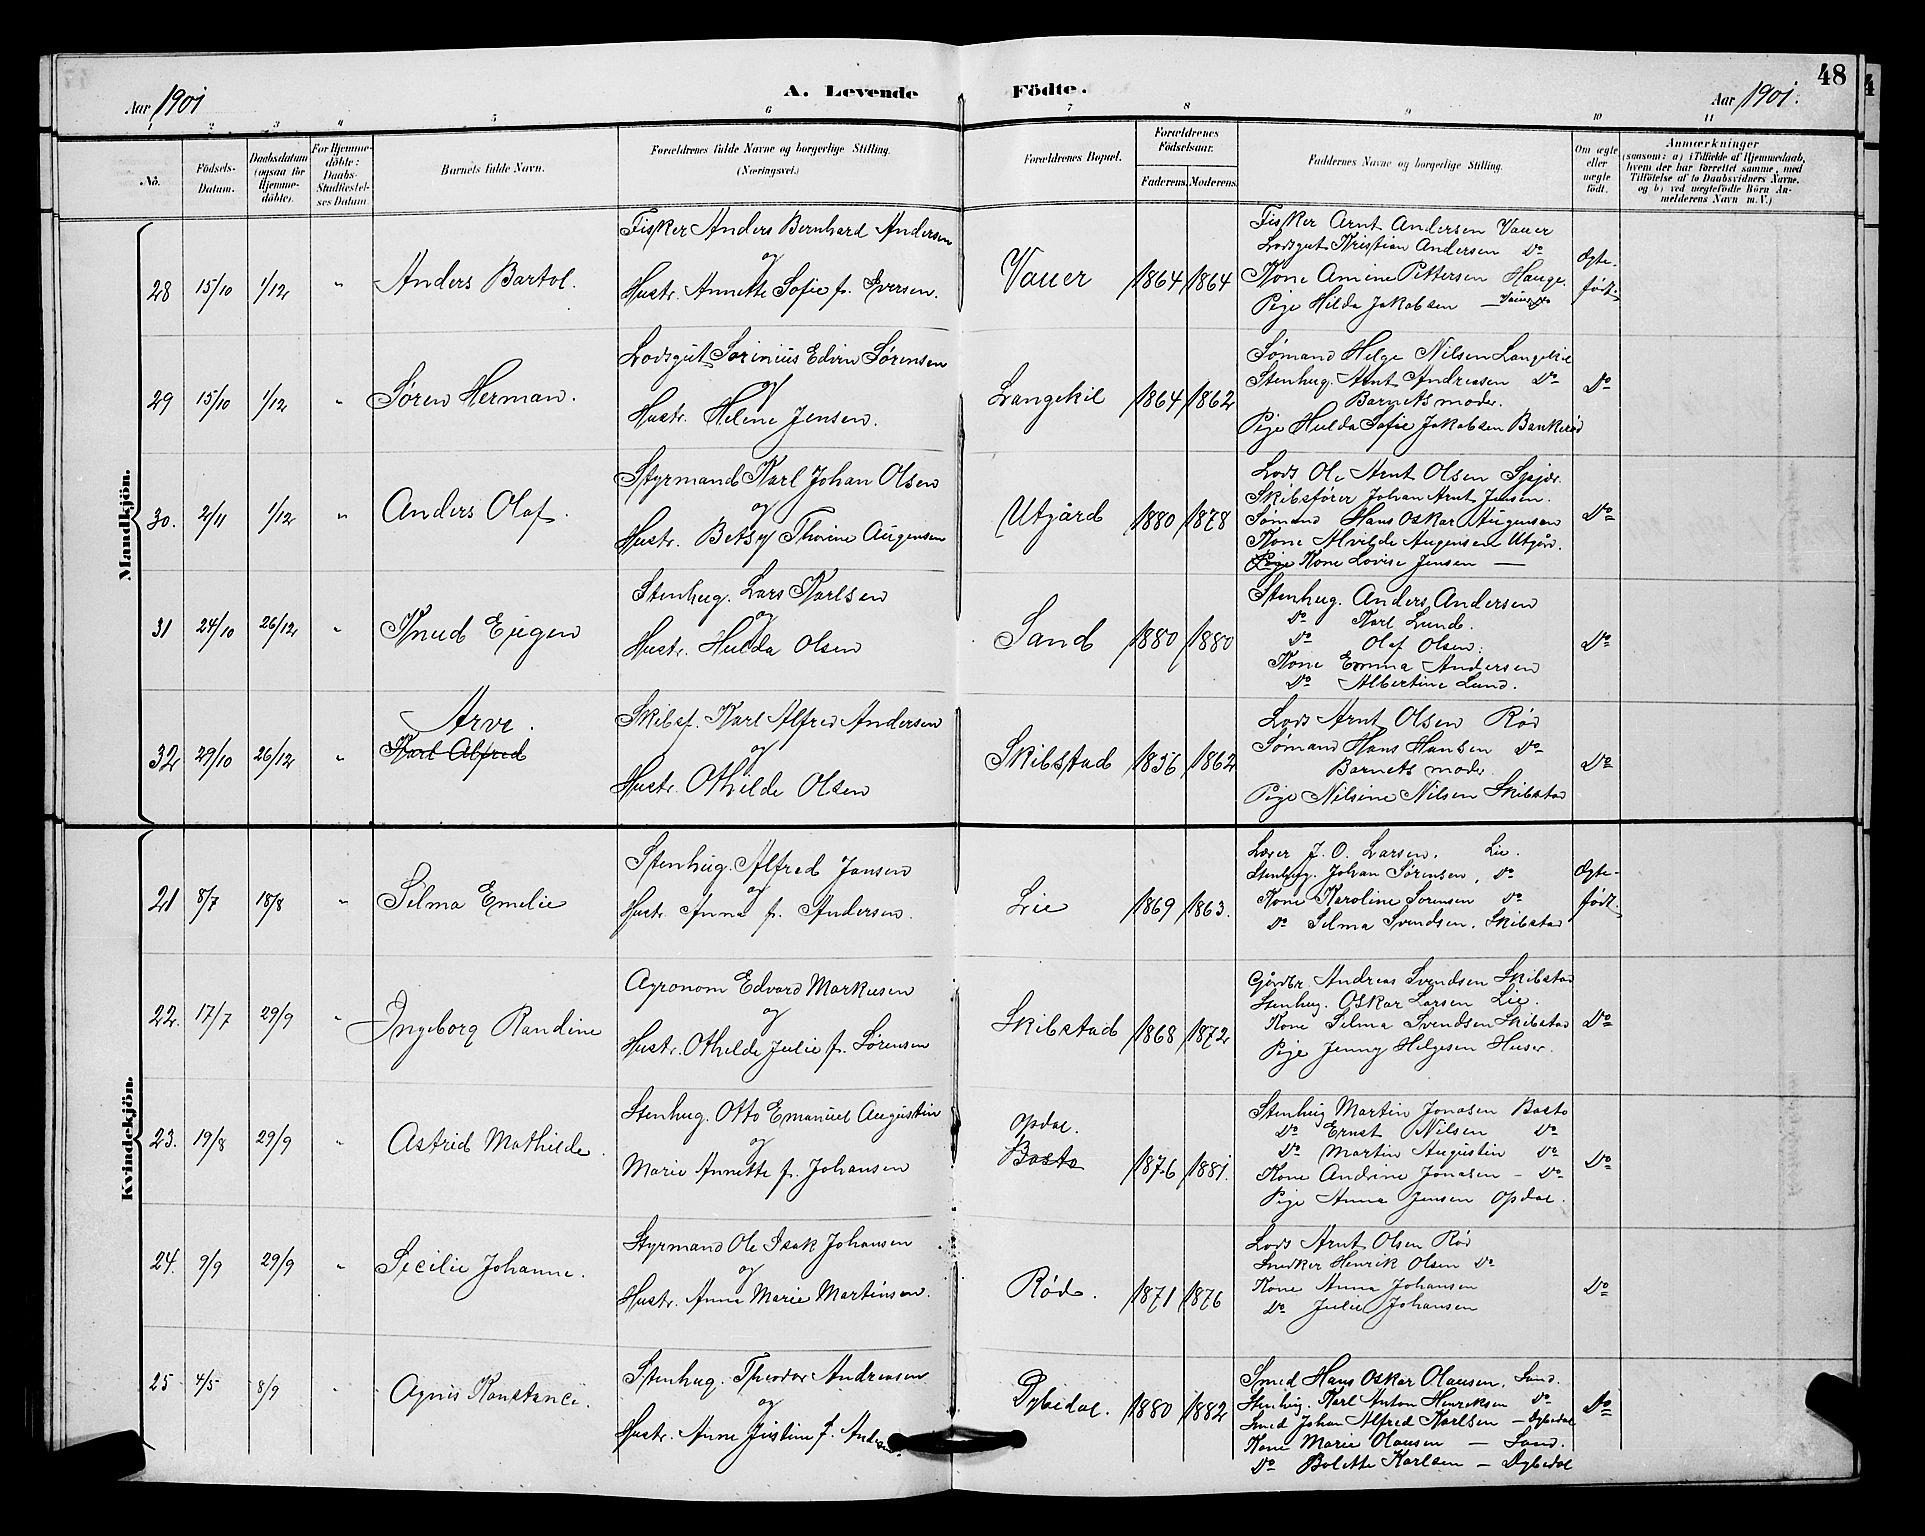 48
Aar 1901 A. Levende Födte. Aar 1901.
1 2 3 4 5 6 7 8 9 10 11
No. Födsels-Datum. Daabsdatum (ogsaa for Hjemmedöbte). For Hjemmedöbte: Daabs-Stadfæstelses Datum Barnets fulde Navn. Forældrenes fulde Navne og borgerlige Stilling. (Næringsvei.) Forældrenes Bopæl. Forældrenes Födselsaar. Faderens. Moderens. Faddernes Navne og borgerlige Stilling. Om ægte eller uægte födt. Anmærkninger
(saasom: a) i Tilfælde af Hjemmedaab,
hvem der har forrettet samme, med
Tilföielse af to Daabsvidners Navne,
og b) ved uægtefödte Börn An-
melderens Navn m.V.)
Mandkjön.
28 15/10 1/12 " Anders Bartol.
Fisker Anders Bernhard Andersen
og
Hustr. Annette Sofie f. Iversen.
Vauer 1864 1864
Fisker Arnt Andersen Vauer
Lodsgut Kristian Andersen Do
Kone Amine Pettersen Hauge.
Pige Hilda Jakobsen —
Ægte-
født.
29 15/10 1/12 " Søren Herman.
Lodsgut Sorinius Edvin Sørensen
og
Hustr. Helene Jensen.
Langekil 1864 1862
Sømand Helge Nilsen Langekil
Stenhug. Arnt Andreasen Do
Barnets moder.
Pige Hulda Sofie Jakobsen Bankerød
Do
30. 2/11 1/12 " Anders Olaf.
Styrmand Karl Johan Olsen
og
Hustr. Betsy Thorine Augensen
Utgård 1880 1878
Lods Ole Arnt Olsen
Skibsfører Johan Arnt Jensen.
Sømand Hans Oskar Augensen
Kone Alvilde Augensen Utgård.
Pige Kone Lovise Jensen —
Do
31 24/10 26/12 " Knud Eugen
Stenhug. Lars Karlsen
og
Hustr. Hulda Olsen
Sand 1880 1880
Stenhug. Anders Andersen
Do Karl Lund.
Do Olaf Olsen.
Kone Emma Andersen
Do Albertine Lund.
Do
32 29/10 26/12 " Arve.
Karl Alfred
Skibsf. Karl Alfred Andersen
og
Hustr. Othilde Olsen
Skibstad 1856 1862
Lods Arnt Olsen Rød
Sømand Hans Hansen Do
Barnets moder.
Pige Nilsine Nilsen Skibstad
Do
Kvindekjön.
21 8/7 18/8 " Selma Emelie
Stenhug. Alfred Jansen
og
Hustr. Anna f. Andersen.
Lie 1869 1863.
Lærer J. O. Larsen. Lie.
Stenhug. Johan Sørensen, Do
Kone Karoline Sorensen Do
Do Selma Svendsen. Skibstad
Ægte-
født.
22. 17/7 29/9 " Ingeborg Randine
Agronom Edvard Markusen
og
Hustr. Othilde Julie f. Sørensen
Skibstad 1868 1872
Gårdbr. Andreas Svendsen Skibstad
Stenhug. Oskar Larsen Lie.
Kone Selma Svendsen Skibstad
Pige Jenny Helgesen Huser.
Do
23. 19/8 29/9 " Astrid Mathilde.
Stenhug. Otto Emanuel Augustin
og
Marie Annette f. Johansen
Opdal.
Basto 1876 1881.
Stenhug Martin Jonasen Basto
Do Ernst Nilsen Do
Do Martin Augustin Do
Kone Andrine Jonasen - Do
Pige Anna Jensen Opdal.
Do
24. 9/9 29/9 " Secilie Johanne.
Styrmand Ole Isak Johansen
og
Hustr. Anna Marie Martinsen.
Rød. 1871 1876
Lods Arnt Olsen Rød
Snedker Henrik Olsen Do
Kone Anna Johansen
Do Julie Johansen
Do
25 4/5 8/9 " Agnis Konstance.
Stenhug. Theodor Andreasen
og
Hustr. Anne Justine f.
Dybedal. 1880 1882
Smed Hans Oskar Olausen. Sand.
Stenhug. Karl Anton Henriksen Do
Smed Johan Alfred Karlsen — Dybedal
Kone Marie Olausen — Sand.
Do Bolette Karlsen — Dybedal
Do